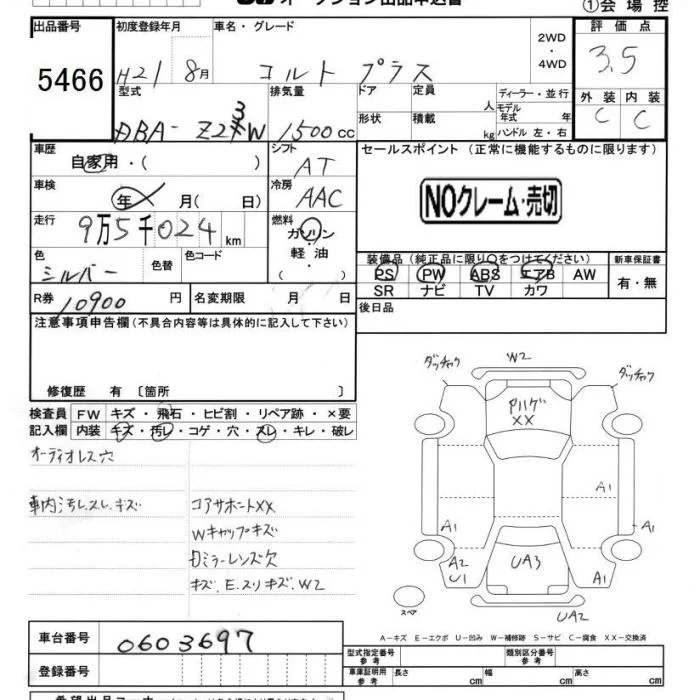 オークション出品申込書
①会場控
出品番号 初度登録年月 車名・グレード 2WD・4WD 評価点
5466 H21 8月 コルト プラス 3.5
型式 排気量 ドア 定員 人 ディーラー・並行 外装 内装
DBA- Z23W 1500cc 形状 積載 kg モデル年式 年 ハンドル 左・右 C C
車歴 自家用・( ) シフト AT セールスポイント (正常に機能するものに限ります)
車検 年 月( 日) 冷房 AAC
NOクレーム・売切
走行 9万5千024km 燃料 ガソリン・軽油・( )
色 シルバー 色替 色コード
装備品 (純正品に限り○をつけてください) 新車保証書
PS PW ABS エアB AW 有・無
SR ナビ TV カワ
R券 10900円 名変期限 月 日 後日品
注意事項申告欄(不具合内容等は具体的に記入して下さい)
修復歴 有 〔箇所 〕
検査員 FW キズ・飛石・ヒビ割・リペア跡・×要
記入欄 内装 キズ・汚レ・コゲ・穴・スレ・キレ・破レ
オーディオレス穴
車内汚レスレキズ
コアサポートXX
Wキャップキズ
ミラーレンズ欠
キズ、E、スリキズ、W2
ダッチャク W2 ダッチャク
XX
A1
A1 A1
A2 U1 UA3 A1
スペア
UA2
A-キズ E-エクボ U-凹み W-補修跡 S-サビ C-腐食 XX-交換済
車台番号 0603697
登録番号
型式指定番号 参考 類別区分番号 参考
車庫証明用 参考 長さ cm 幅 cm 高さ cm